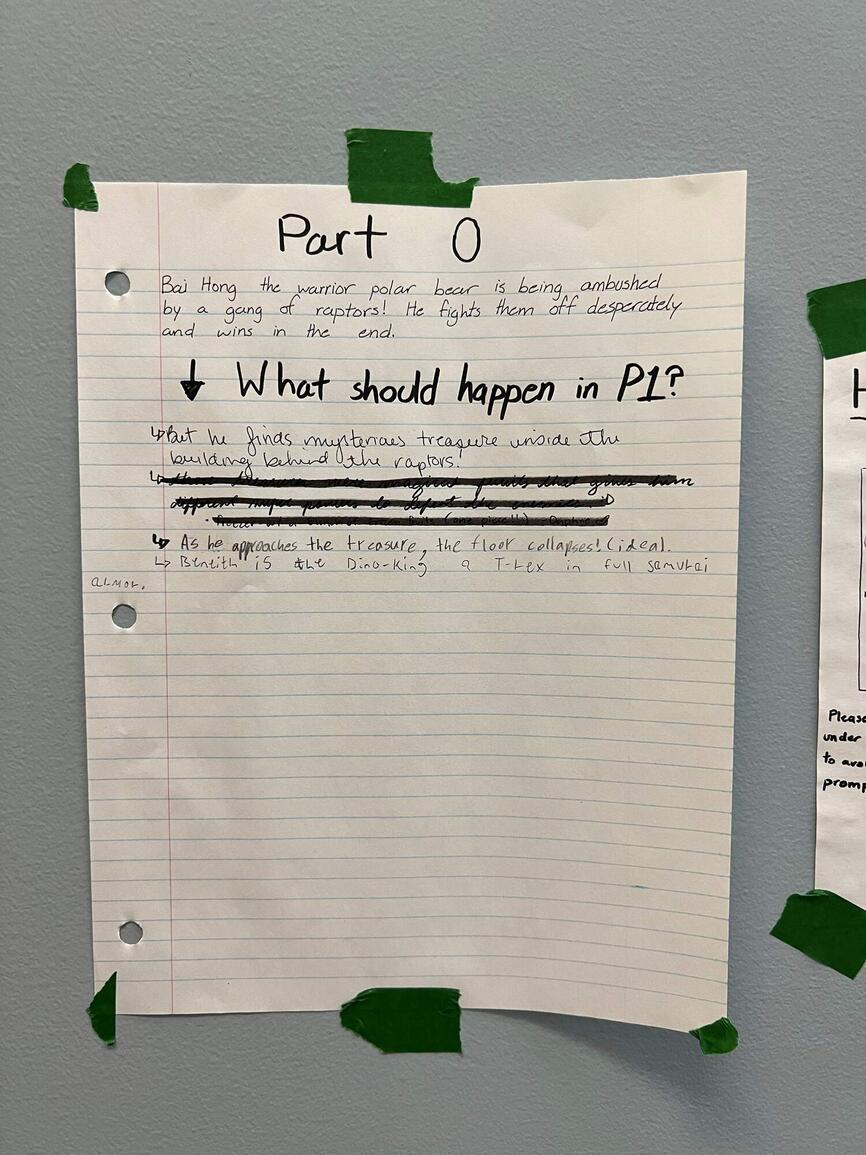 Part 0
Bai Hong the warrior polar bear is being ambushed
by a gang of raptors! He fights them off desperately
and wins in the end.
↓ What should happen in P1?
↳But he finds mysterious treasure inside the
building behind the raptors!
magical that gives him
different powers to defeat the enemies
↳ As he approaches the treasure, the floor collapses! (idea).
↳ Bentith is the Dino-King a T-rex in full samurai
armor.
H
Please
under
to avo
promp